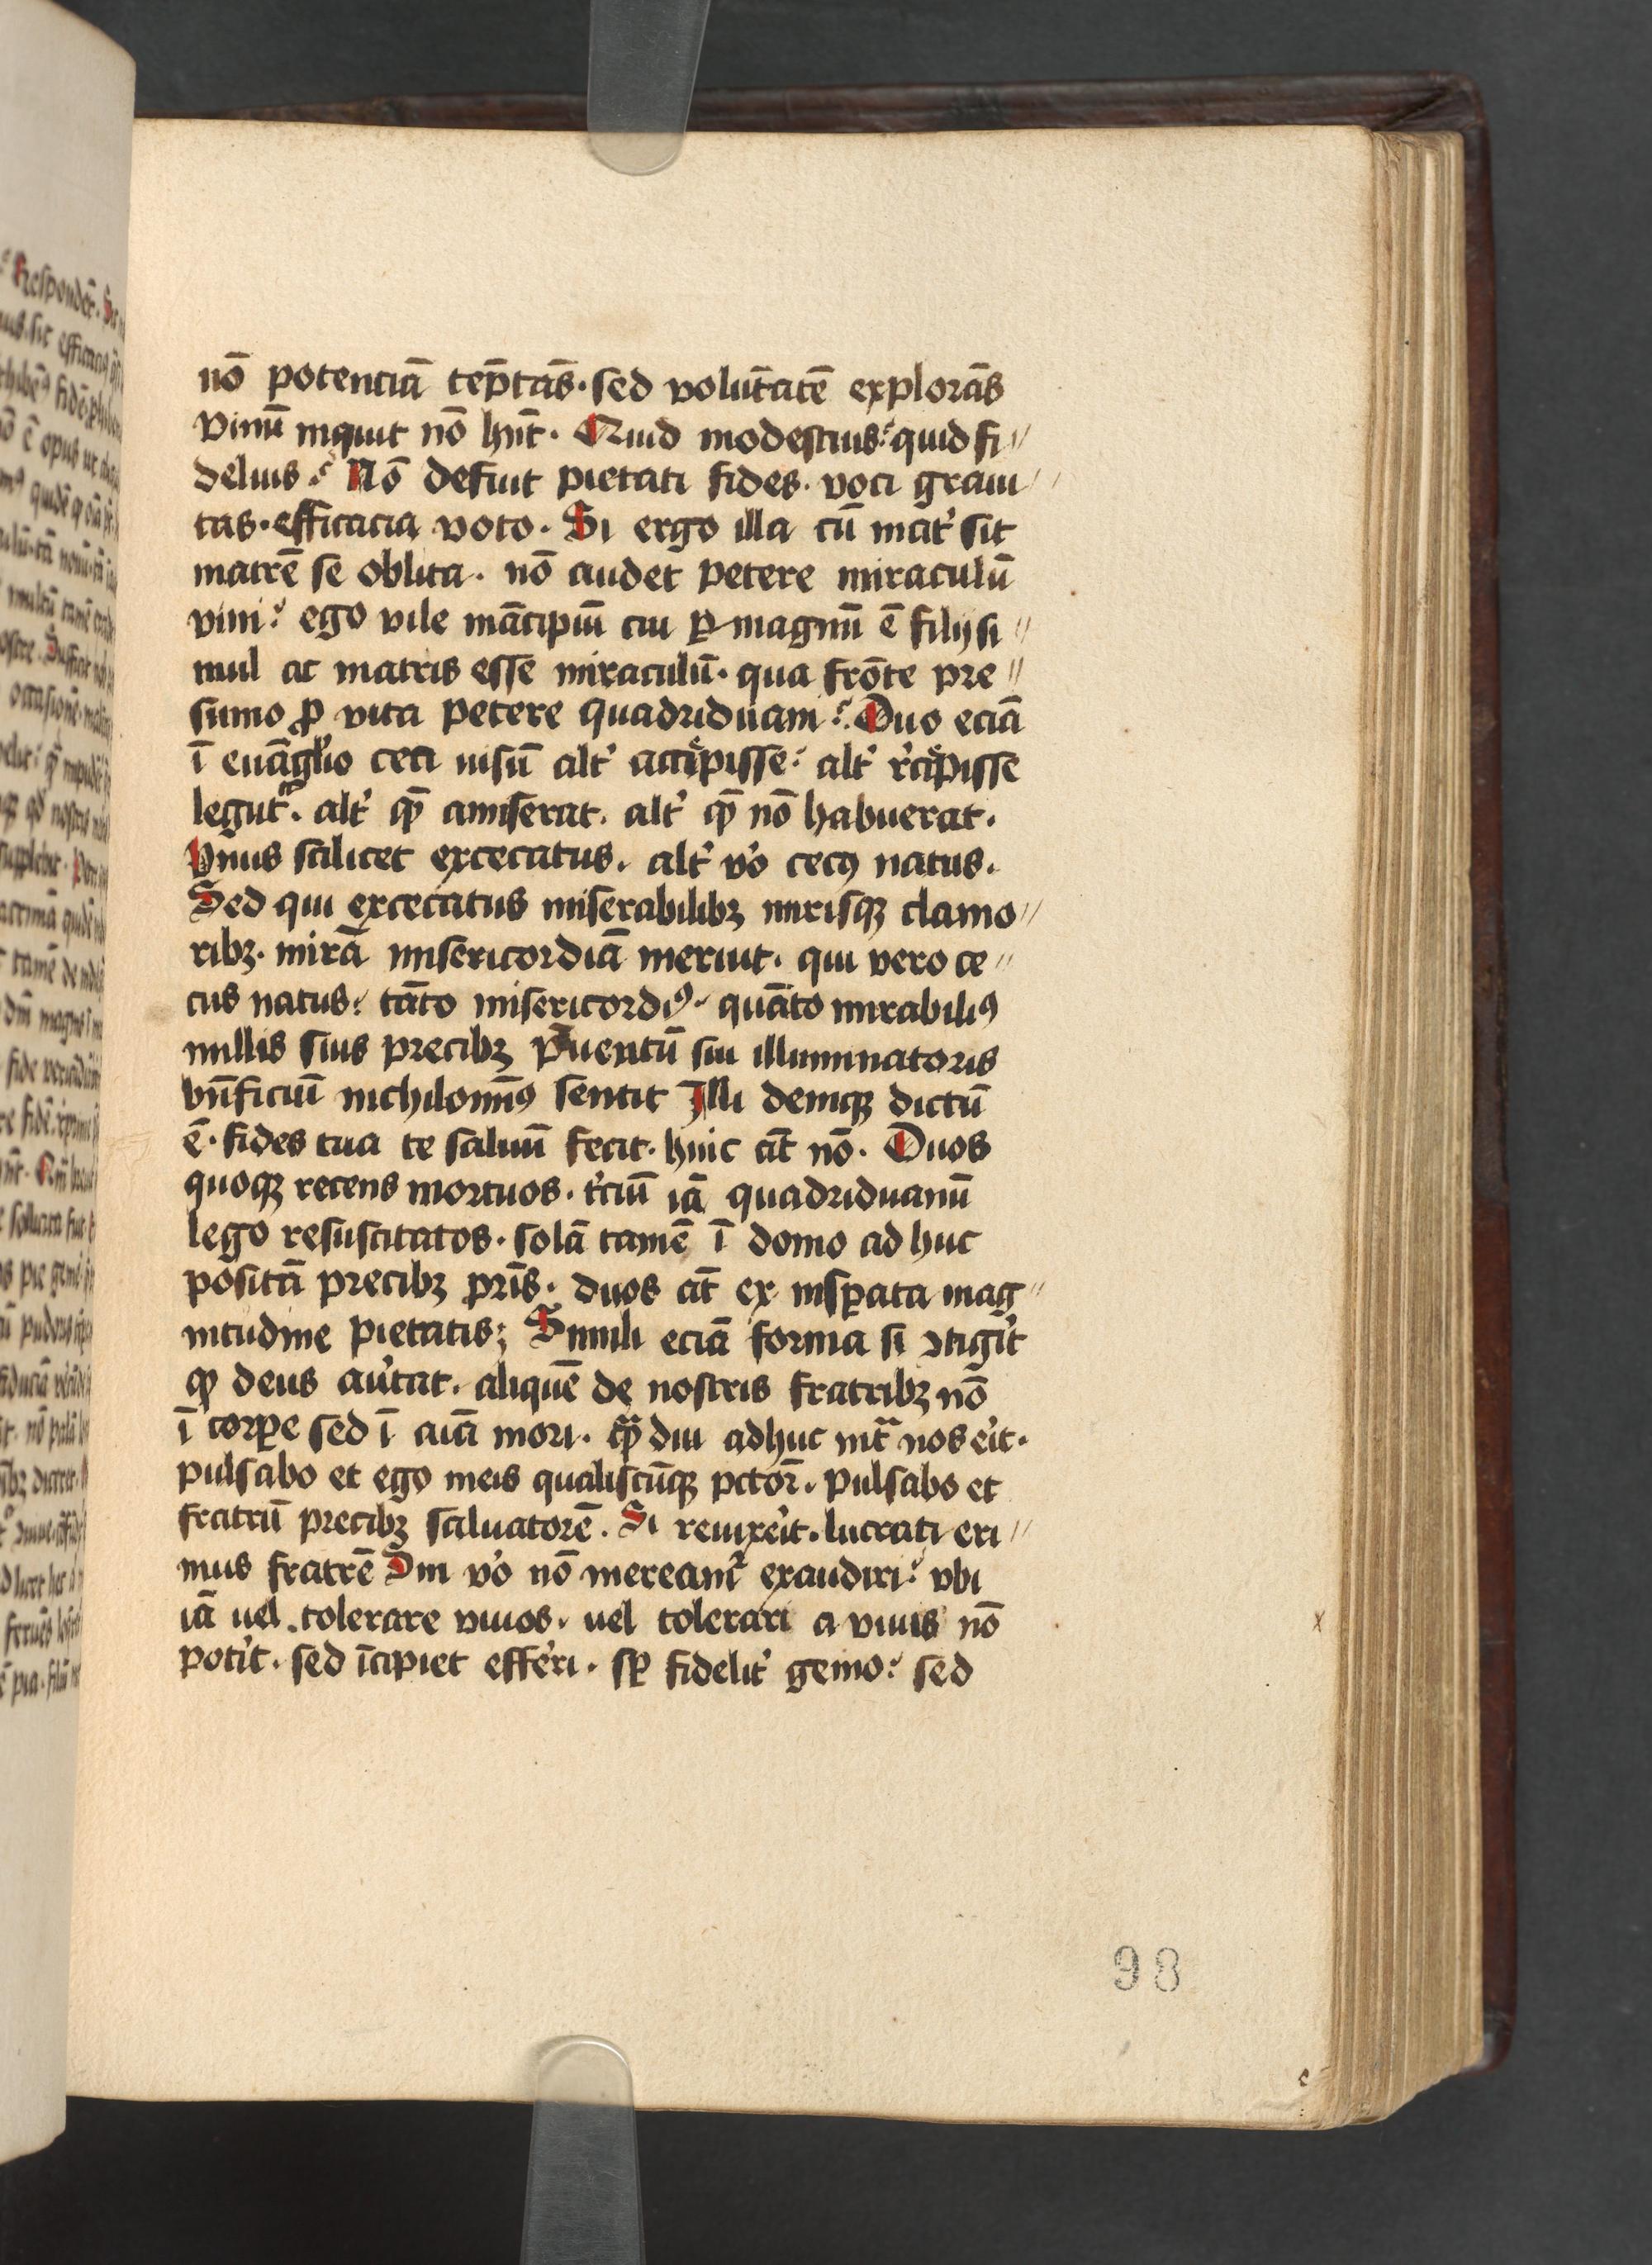 nō potenciā tēp̄tās · sed volūtatē explorās
vinū inquit nō hn̄t · Quid modestius? quid fi〃
delius? Nō defuit pietati fides · voci graui〃
tas · efficacia voto · Si ergo illa cū mat̾ sit
matrē se oblita · nō audet petere miraculū
vini? ego vile mācipiū cui ꝑmagnū ē filij si〃
mul ac matris esse miraculū · qua frōte pre〃
sumo ꝓ vita petere quadriduani? Duo eciā
ī euāgl̾io ceci uisū alt̾ accepisse? alt̾ r̾cepisse
legūt᷑ · alt̾ qꝫ̄ amiserat · alt̾ qꝫ̄ nō habuerat ·
Vnus scilicet excecatus · alt̾ v̾o cecꝰ natus ·
Sed qui excecatus miserabilibꝫ mirisqꝫ clamo〃
ribꝫ · mirā misericordiā meruit · qui vero ce〃
cus natus? tāto misericordiꝰ · quāto mirabiliꝰ
nullis suis precibꝫ p̄uentū sui illuminatoris
bn̄ficiū nichilomīꝰ sentit Illi deniqꝫ dictū
ē · fides tua te saluū fecit · huic at̄ nō · Duos
quoqꝫ recens mortuos · t̾ciū iā quadriduanū
lego resuscitatos · solā tamē ī domo ad huc
positā precibꝫ pr̄is · duos at̄ ex insꝑata mag〃
nitudine pietatis; Simili eciā forma si ꝯtig̾it
qꝫ deus au̾tat · aliquē de nostris fratribꝫ nō
ī corꝑe sed ī aīa mori · qͣ̄diu adhuc intͣ nos e̾it ·
pulsabo et ego meis qualiscūqꝫ pctōr̄ · pulsabo et
fratrū precibꝫ saluatorē · Si reuixe̾it · lucrati eri〃
mus fratrē Sin v̾o nō meream᷑ exaudiri? vbi
iā uel tolerare viuos · uel tolerari a viuis nō
pot̾it · sed īcipiet effe̾ri · sꝑ fidelit̾ gemo? sed
98